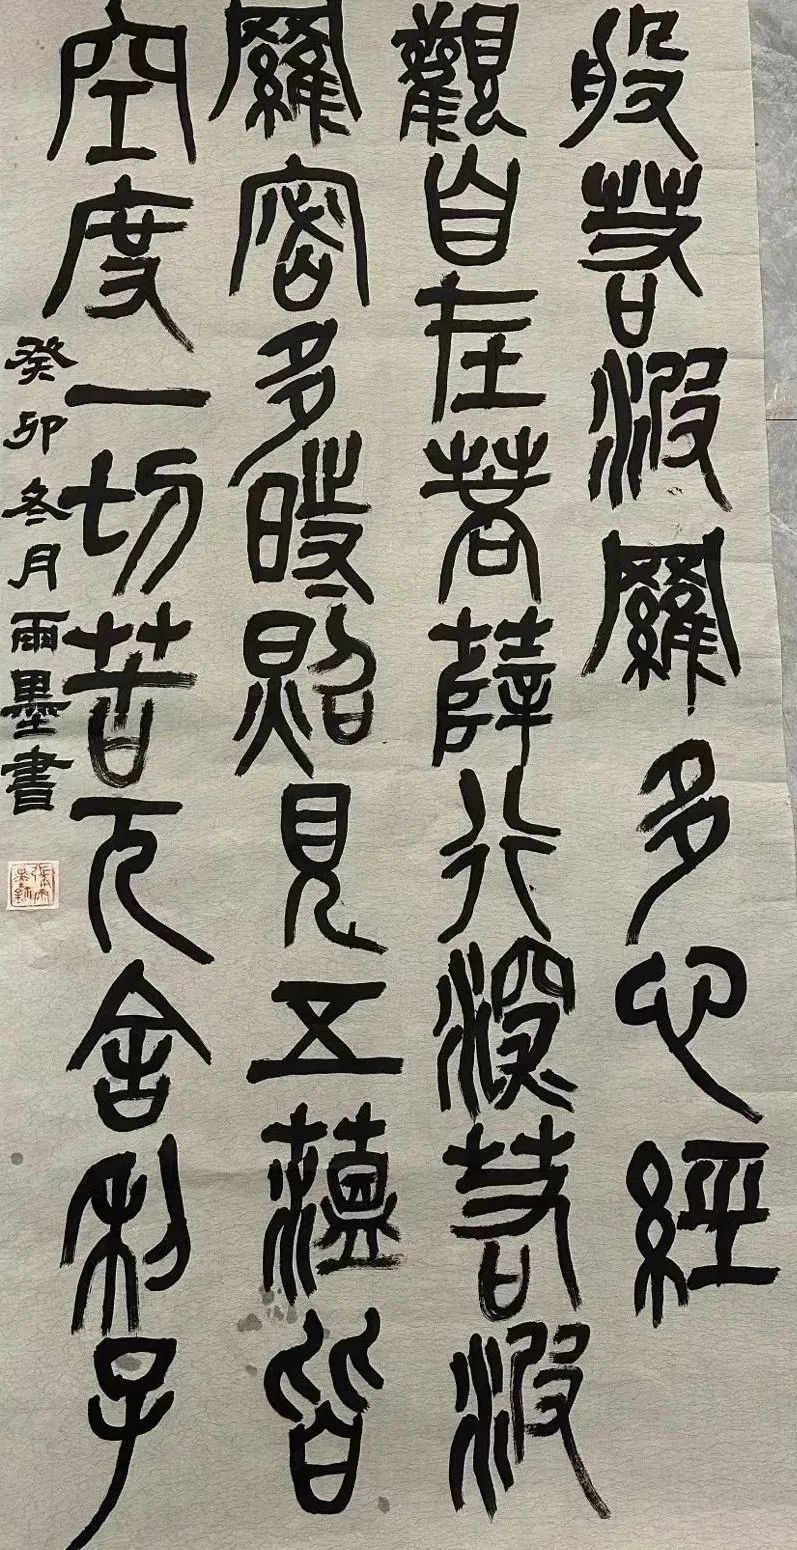 般若波羅多心經
觀自在菩薩行深若波
羅密多時照見五蘊皆
空度一切苦厄舍利子
癸卯冬月雨墨書